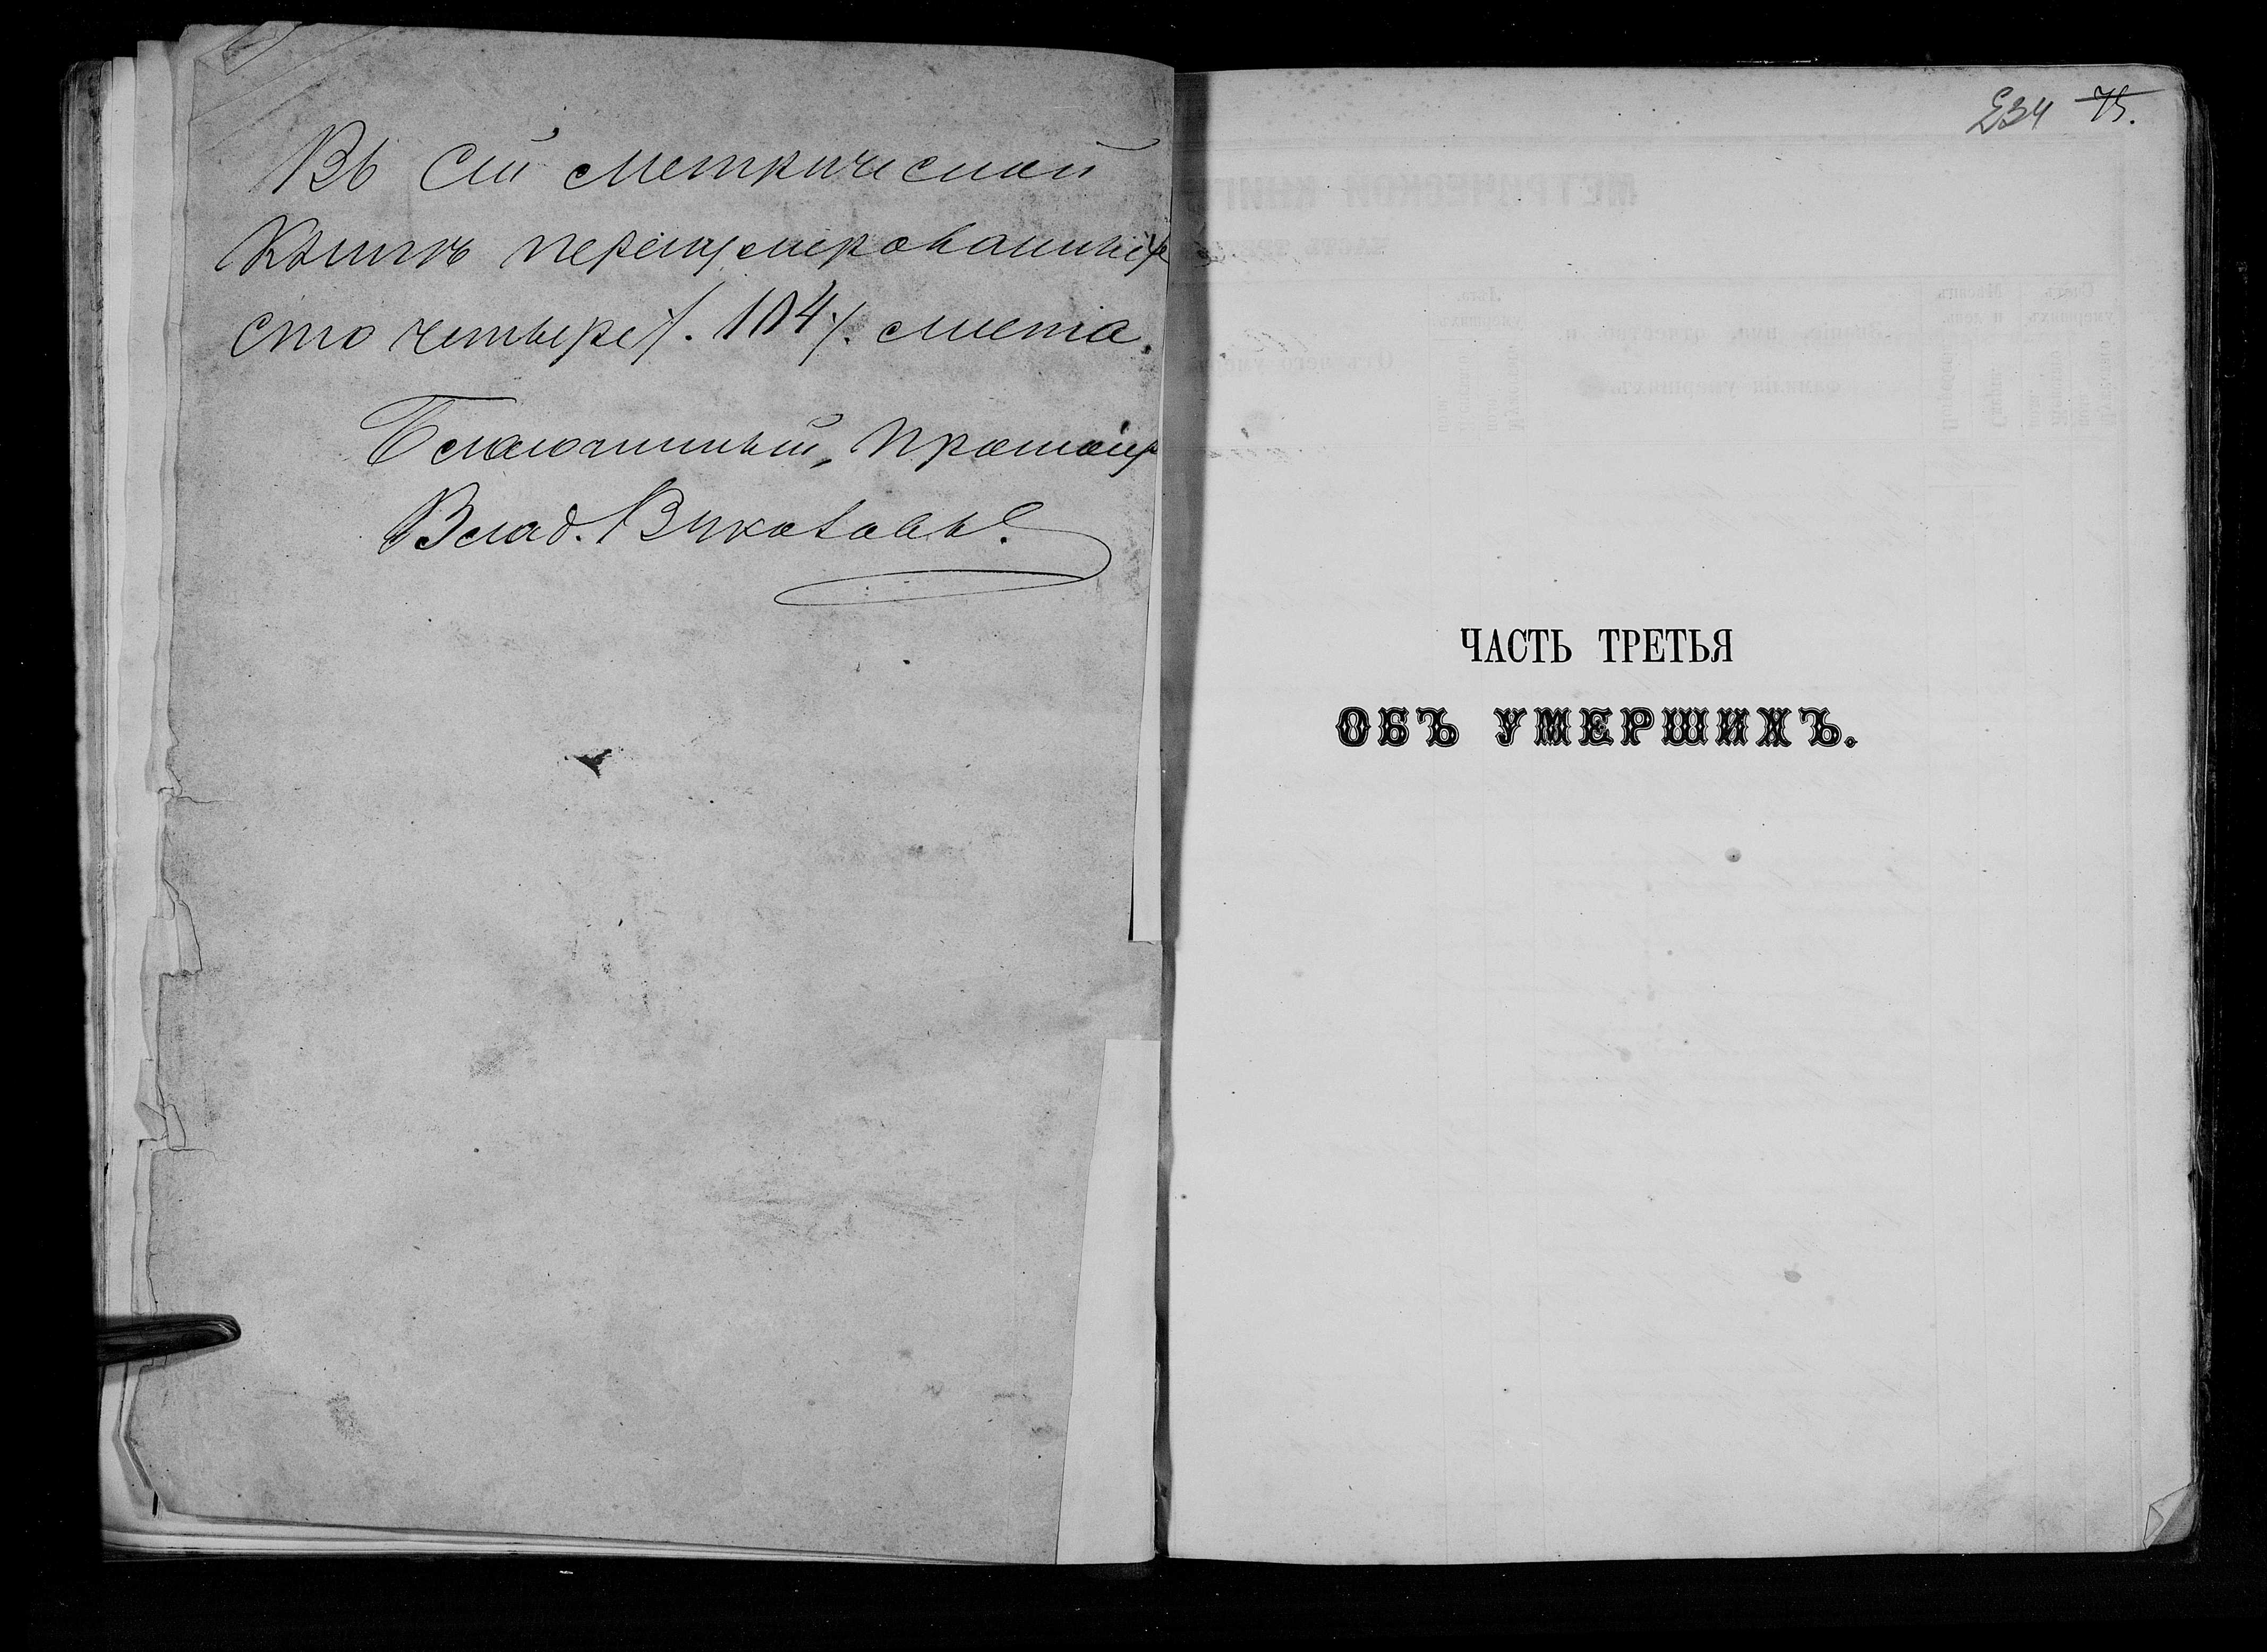 Въ сей метрической
книгѣ перенумерованныхъ
сто четыре /.104/. листа.
Благочинный, Протоіер
Влад.
234 75.
ЧАСТЬ ТРЕТЬЯ
ОБЪ УМЕРШИХЪ.